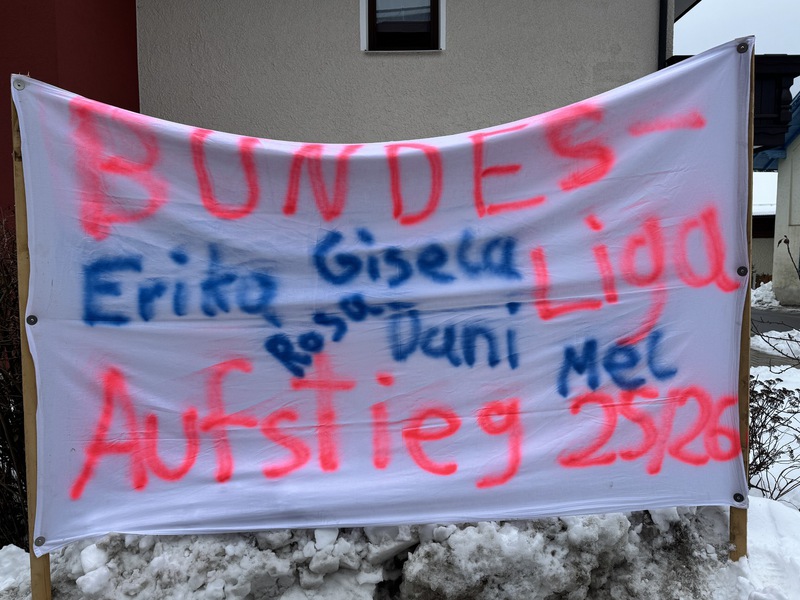 BUNDES-
Liga
Erika Gisela
Rosa Dani Mel
Aufstieg 25/26